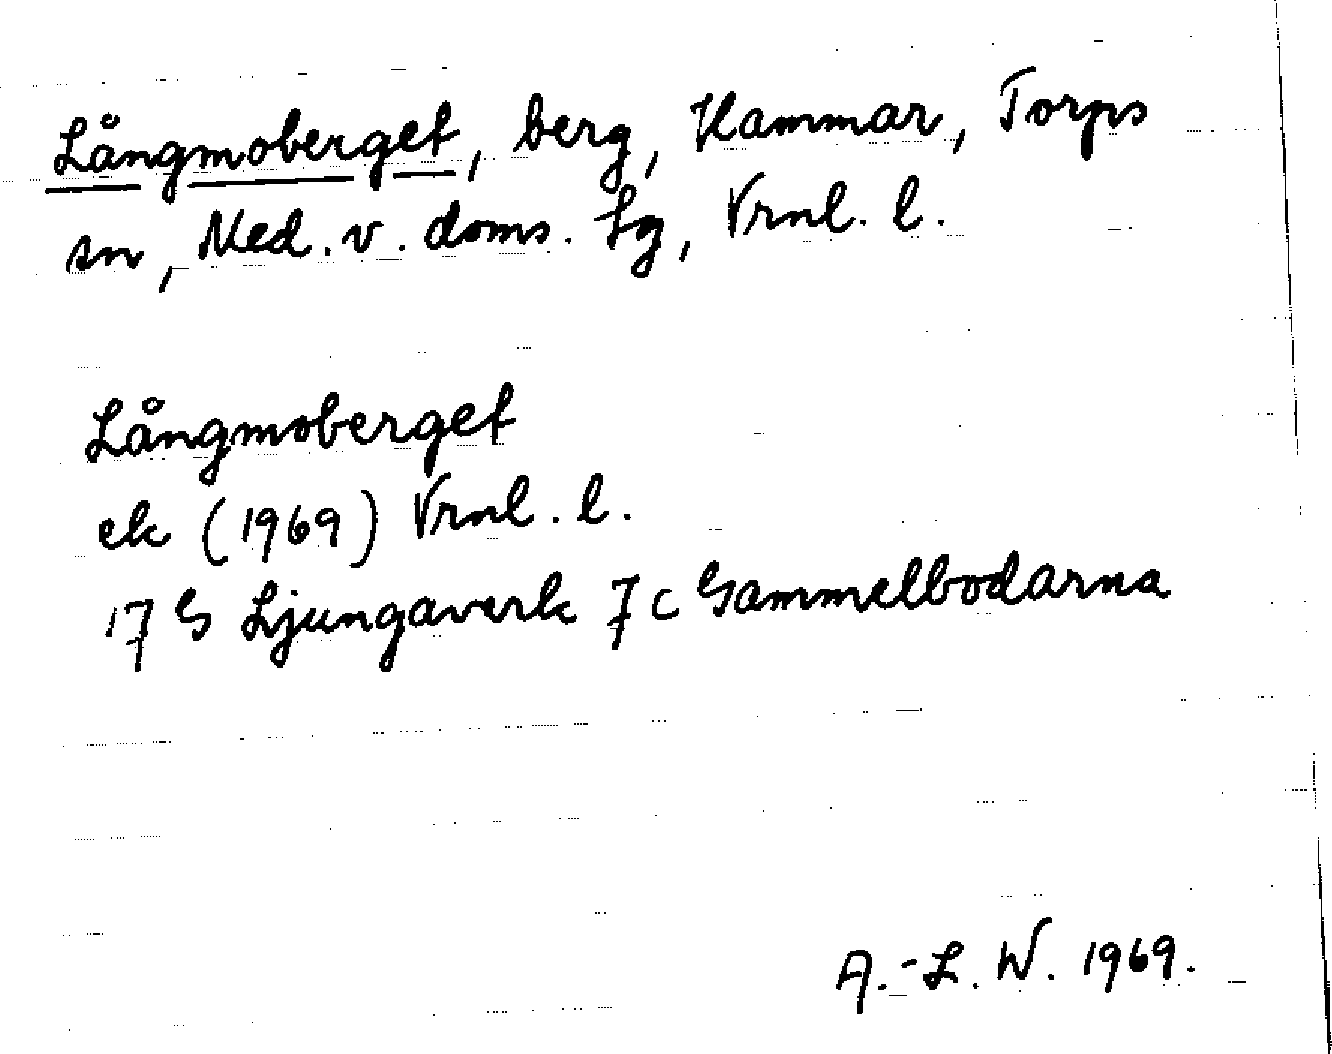 Långmoberget, berg, Hammar, Torps
sn, Med. v. doms. sg, Vrnl. l.
Långmoberget
ek (1969) Vrnl. l.
17 G Ljungaverk 7 c Gammelbodarna
A.-L. W. 1969.